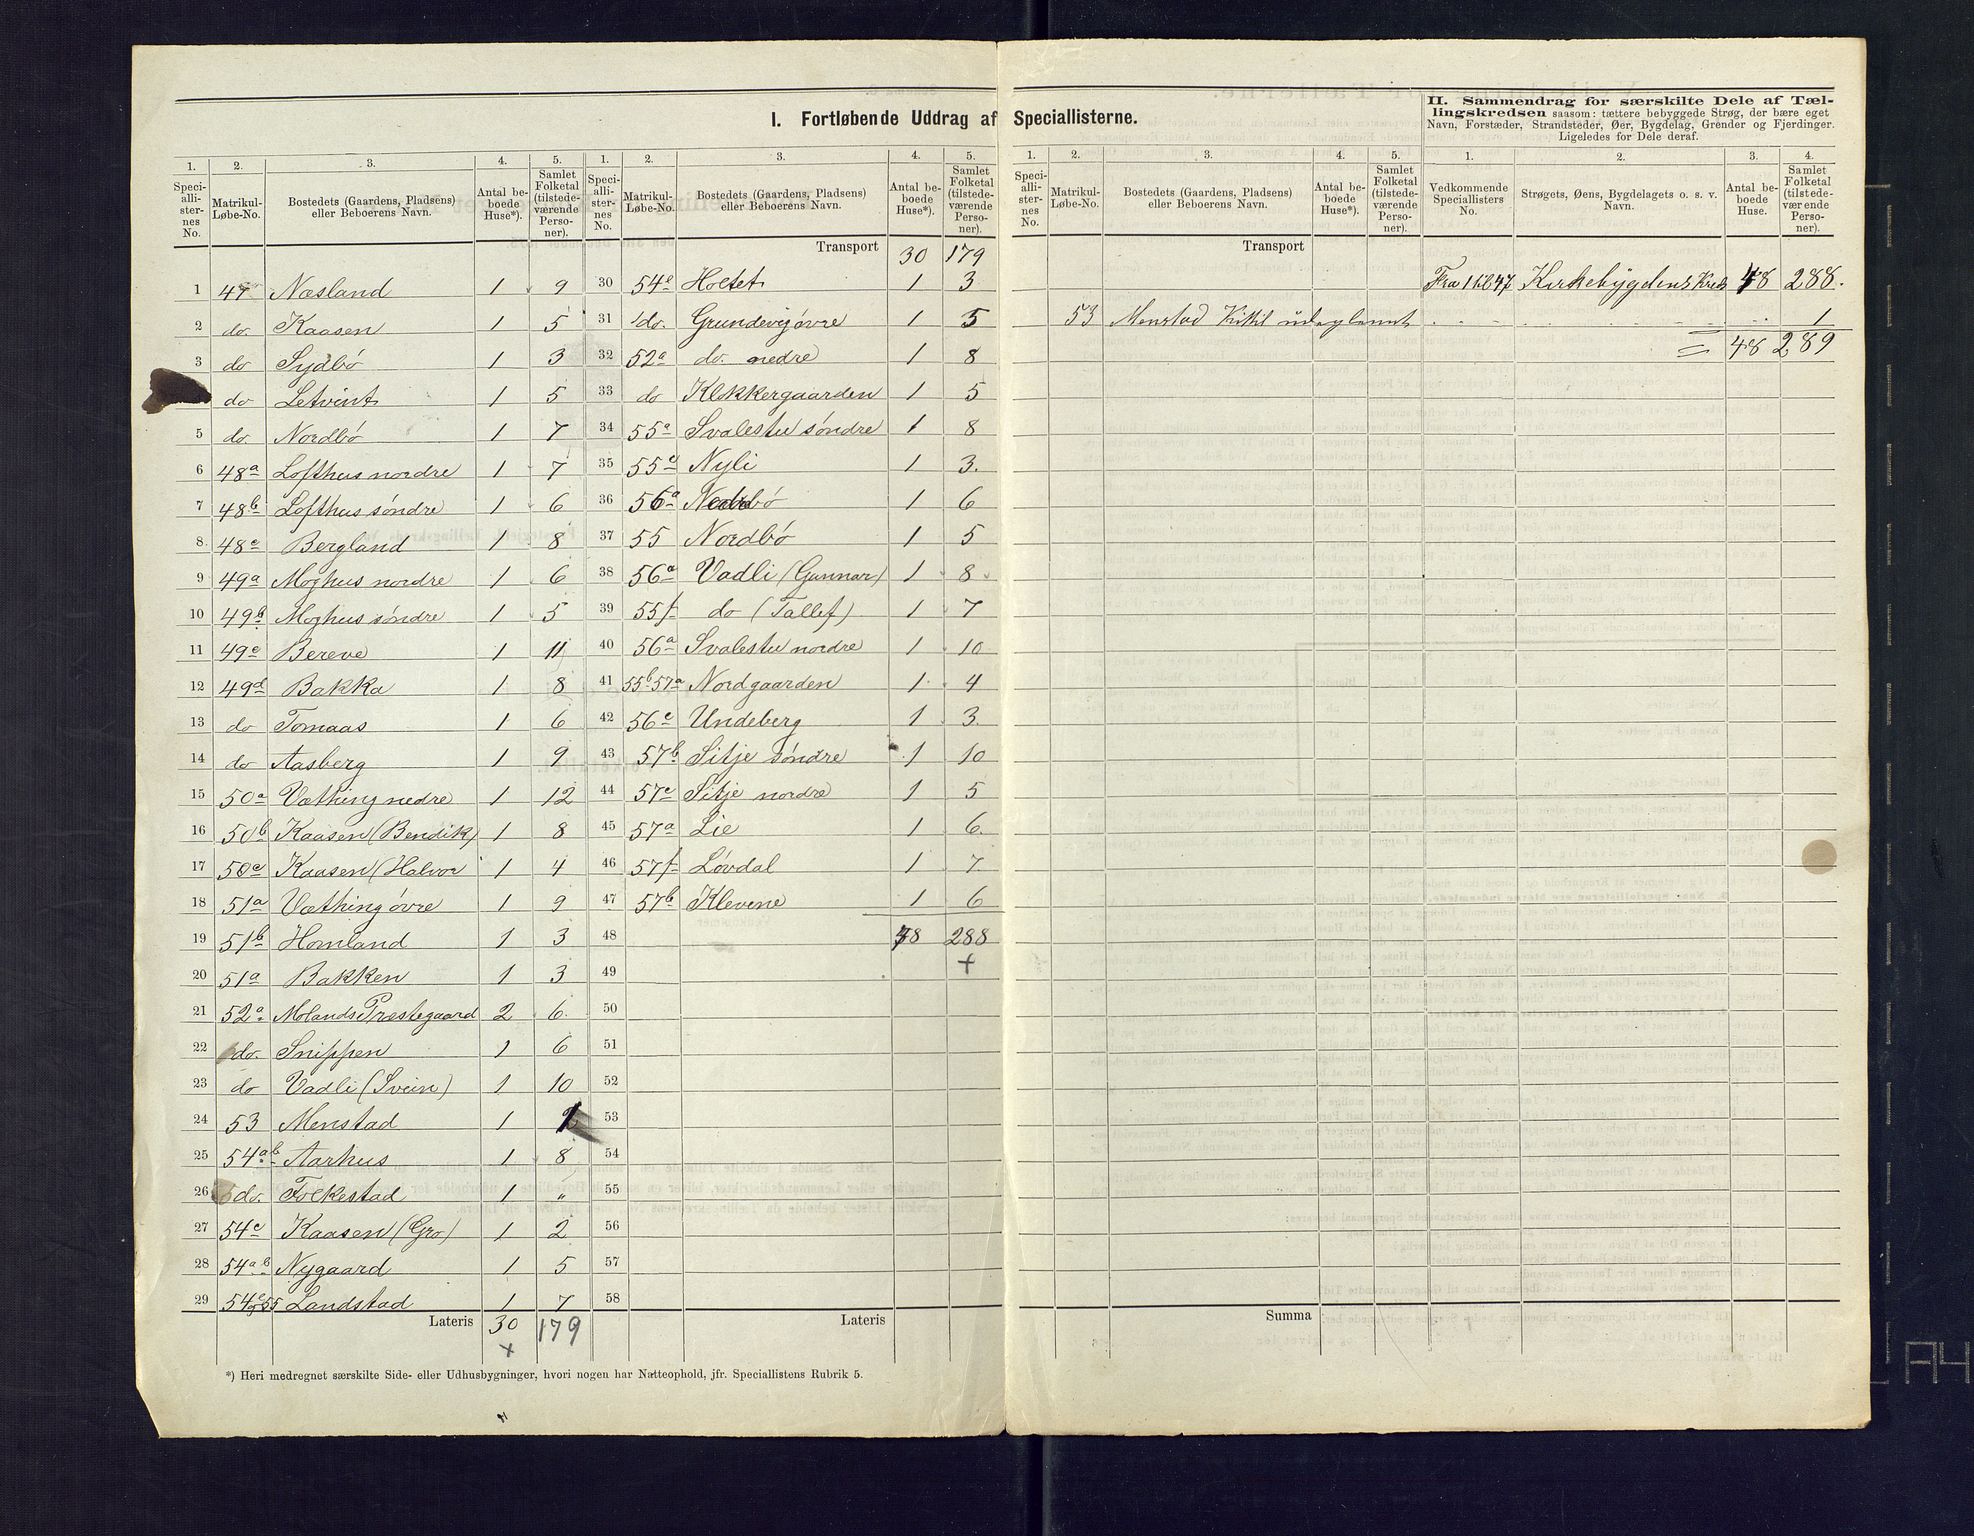 I. Fortløbende Uddrag af Speciallisterne.
II. Sammendrag for særskilte Dele af Tæl-
lingskredsen saasom: tættere bebyggede Strøg, der bære eget
Navn, Forstæder, Strandsteder, Øer, Bygdelag, Grender og Fjerdinger.
Ligeledes for Dele deraf.
1. 2. 3. 4. 5.
Speci-allister-nes No. Matrikul-Løbe-No. Bostedets (Gaardens, Pladsens) eller Beboerens Navn. Antal be-boede Huse*). Samlet Folketal (tilstede-værende Perso-ner).
1 47 Næsland 1 9
2 do. Kaasen 1 5
3 do Sydbø 1 3
do Letvint 1 5
5 do. Nordbø 1 7
6 48a Lofthus nordre 1 7
7 48b Lofthus søndre 1 6
8 48c Bergland 1 8
9 49a Moghus nordre 1 6
10 49b Moghus søndre 1 5
11 49c Bereve 1 11
12 49d Bakka 1 8
13 do Tomaas 1 6
14 do Aasberg 1 9
15 50a Væthing nedre 1 12
16 50b Kaasen (Bendik) 1 8
17 50c Kaasen (Halvor 1 4
18 51a Væthing øvre 1 9
19 51b Homland 1 3
20 51a Bakken 1 3
21 52a Molands Præstegaard 2 6.
22 do. Snippen 1 6
23 do Vadli (Svein) 1 10
24 53 Menstad 1
25 54ab Aarhus 1 8
26 do. Folkestad 1 "
27 54c Kaasen (Gro) 1 2
28 54ab Nygaard 1 5
29 Landstad 1 7
Lateris 30 179
+
1. 2. 3. 4. 5.
Speci-allister-nes No. Matrikul-Løbe-No. Bostedets (Gaardens, Pladsens) eller Beboerens Navn. Antal be-boede Huse*). Samlet Folketal (tilstede-værende Perso-ner).
Transport 30 179
30 54e Holtet 1 3
31 do. Grundevig øvre 1 5
32 52a do. nedre 1 8
33 do Klokkergaarden 1 5
34 55a Svalestu søndre 1 8
35 55c Nyli 1 3.
36 56a 1 6
37 55 Nordbø 1 5
38 56a Vadli (Gunnar) 1 8
39 55f do (Tallef) 1 7
40 56a Svalestu nordre 1 10
41 55b 57a Nordgaarden 1 4
42 56c Undeberg 1 3.
43 57b Sitje søndre 1 10
44 57c Sitje nordre 1 5
45 57a Lie 1 6.
46 57f Løvdal 1 7.
47 57b Klevene 1 6
48 48 288
49 +
50
51
52
53
54
55
56
57
58
Lateris
*) Heri medregnet særskilte Side- eller Udhusbygninger, hvori nogen har Natteophold, jfr. Speciallistens Rubrik 5.
1. 2. 3. 4. 5.
Speci-allister-nes No. Matrikul-Løbe-No. Bostedets (Gaardens, Pladsens) eller Beboerens Navn. Antal be-boede Huse*). Samlet Folketal (tilstede-værende Perso-ner).
Transport
53 Menstad Kittil
Summa
1. 2. 3. 4.
Vedkommende Speciallisters No. Strøgets, Øens, Bygdelagets o. s. v. Navn. Antal be-boede Huse. Samlet Folketal (tilstede-værende Perso-ner).
Fra 1 til 47 Kirkebygdens Kreds 48 288.
1
= 48 289
A4